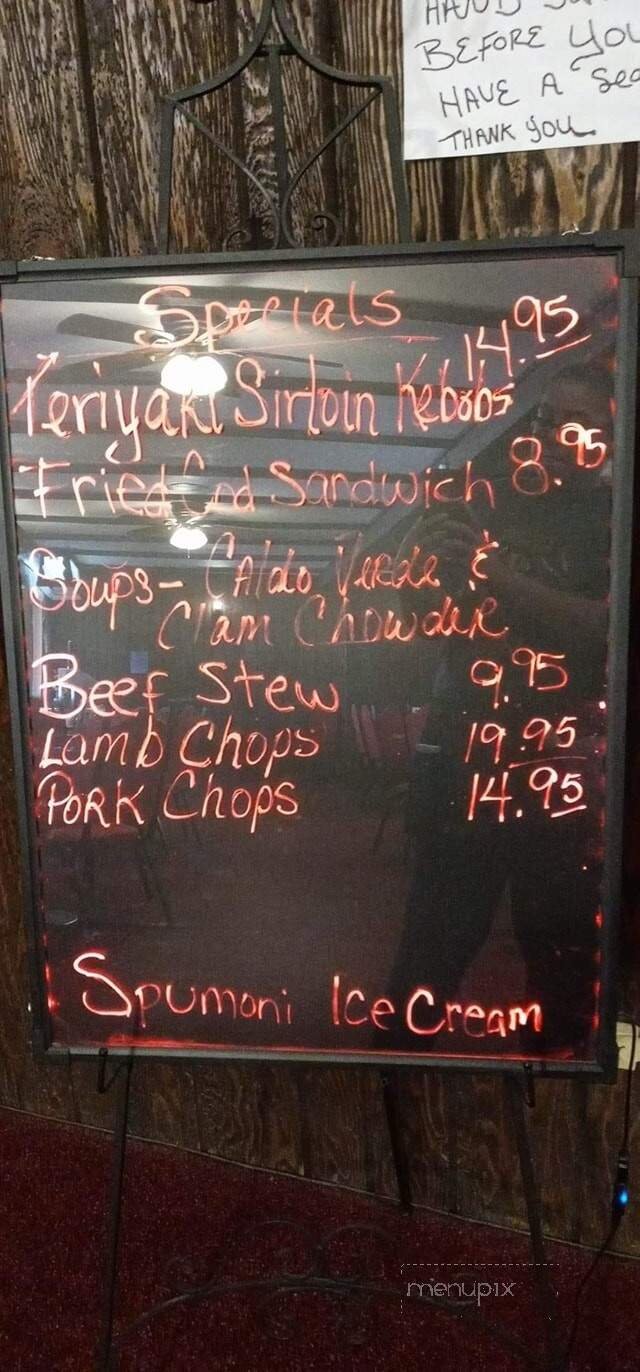 BEFORE YOU
HAVE A
THANK YOU
Specials
Teriyaki Sirloin Kebobs 14.95
Fried Cod Sandwich 8.95
Soups - Caldo Verde &
Clam Chowder
Beef Stew 9.95
Lamb Chops 19.95
Pork Chops 14.95
Spumoni Ice Cream
menupix